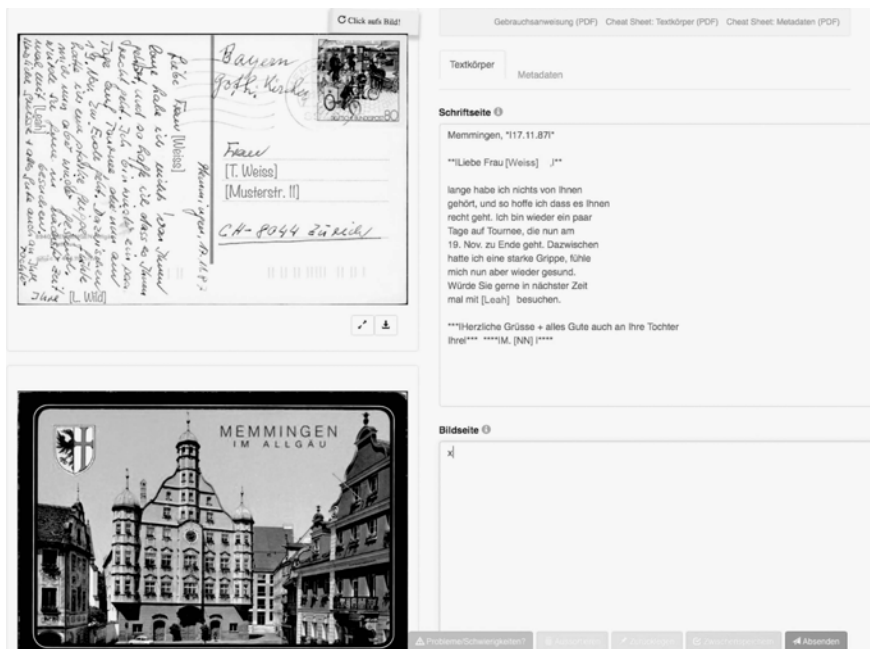 Click aufs Bild!
Bayern
Goth. Kirche
DEUTSCHE BUNDESPOST 80
Frau
[T. Weiss]
[Musterstr. 11]
CH-8044 Zürich
Memmingen, 17.11.87
Liebe Frau [Weiss]
lange habe ich nichts von Ihnen
gehört, und so hoffe ich dass es Ihnen
recht geht. Ich bin wieder ein paar
Tage auf Tournee, die nun am
19. Nov. zu Ende geht. Dazwischen
hatte ich eine starke Grippe, fühle
mich nun aber wieder gesund.
Würde Sie gerne in nächster Zeit
mal mit [Leah] besuchen.
Herzliche Grüsse + alles Gute auch an Ihre
Tochter
Ihre [L. Wild]
MEMMINGEN
IM ALLGÄU
Gebrauchsanweisung (PDF) Cheat Sheet: Textkörper (PDF) Cheat Sheet: Metadaten (PDF)
Textkörper
Metadaten
Schriftseite
Memmingen, "|17.11.87|"
**|Liebe Frau [Weiss] ,|**
lange habe ich nichts von Ihnen
gehört, und so hoffe ich dass es Ihnen
recht geht. Ich bin wieder ein paar
Tage auf Tournee, die nun am
19. Nov. zu Ende geht. Dazwischen
hatte ich eine starke Grippe, fühle
mich nun aber wieder gesund.
Würde Sie gerne in nächster Zeit
mal mit [Leah] besuchen.
***|Herzliche Grüsse + alles Gute auch an Ihre Tochter
Ihre|*** ****|M. [NN] |****
Bildseite
x
Probleme/Schwierigkeiten?
Absenden